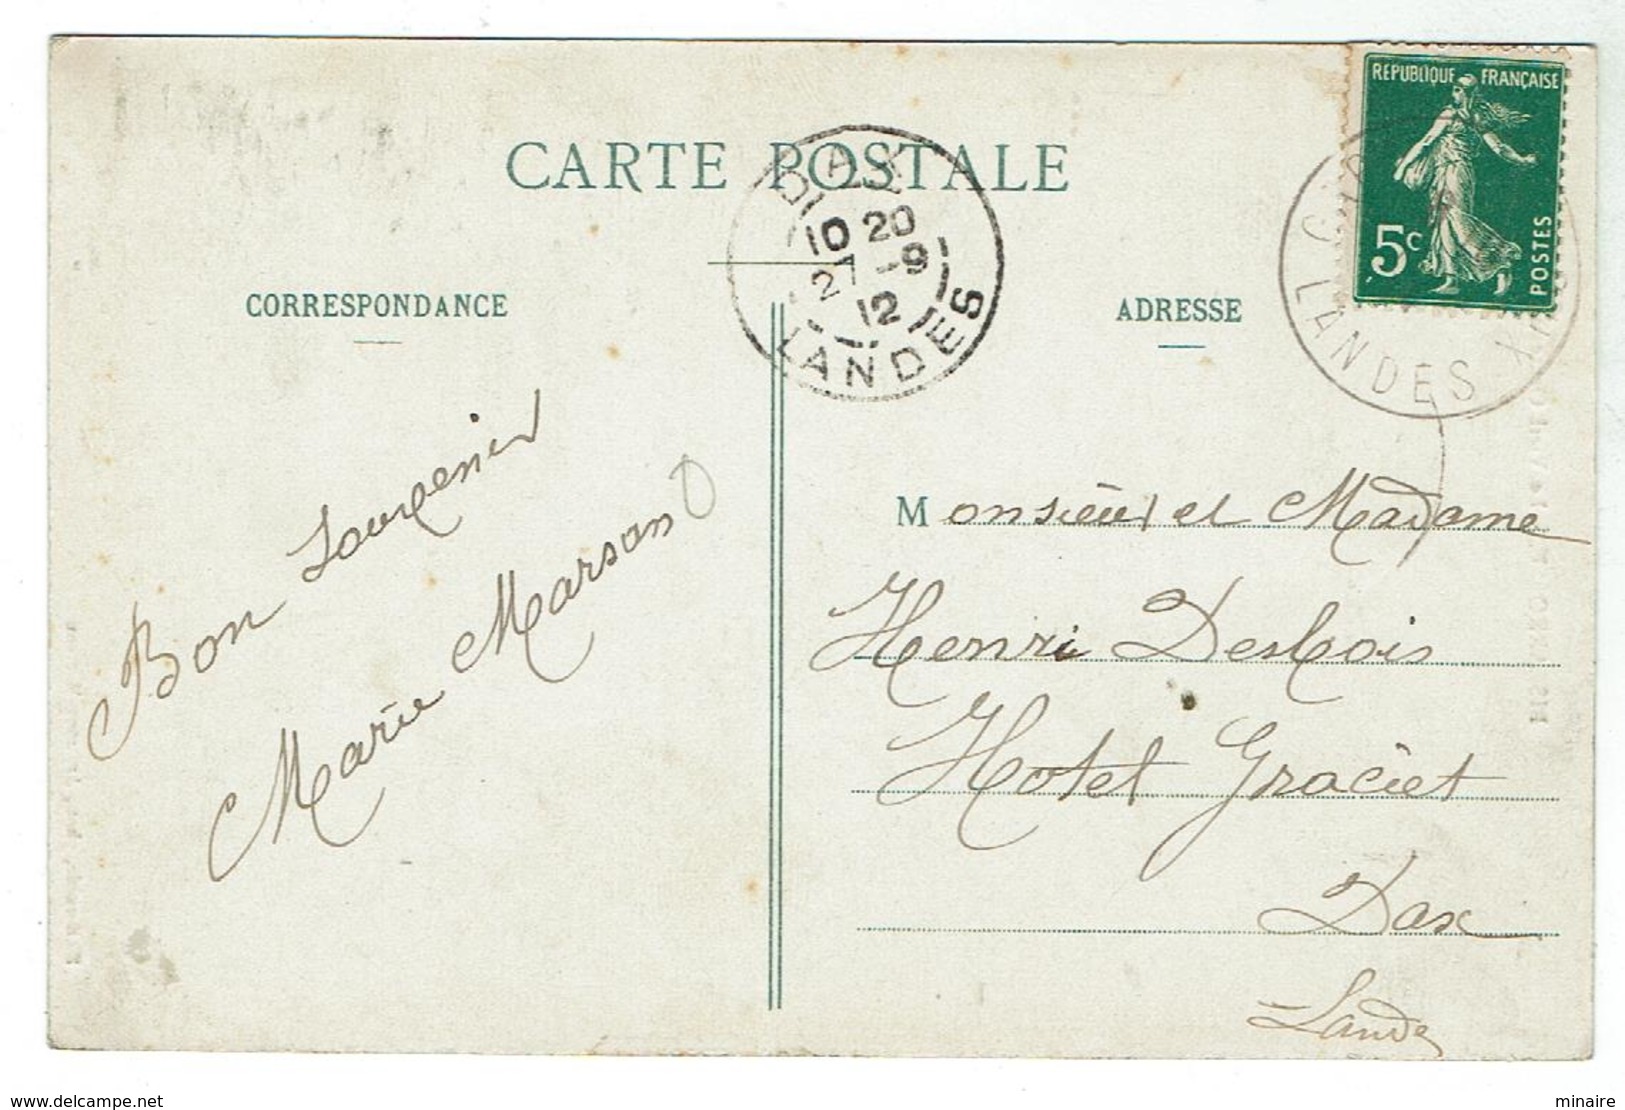 CARTE POSTALE
CORRESPONDANCE
ADRESSE
REPUBLIQUE FRANÇAISE
5c
POSTES
DAX
10 20
27 -9
12
LANDES
LANDES
Bon Souvenir
Marie Marsan
Monsieur et Madame
Henri Desbois
Hotel Graciet
Dax
Lande
www.delcampe.net
minaire